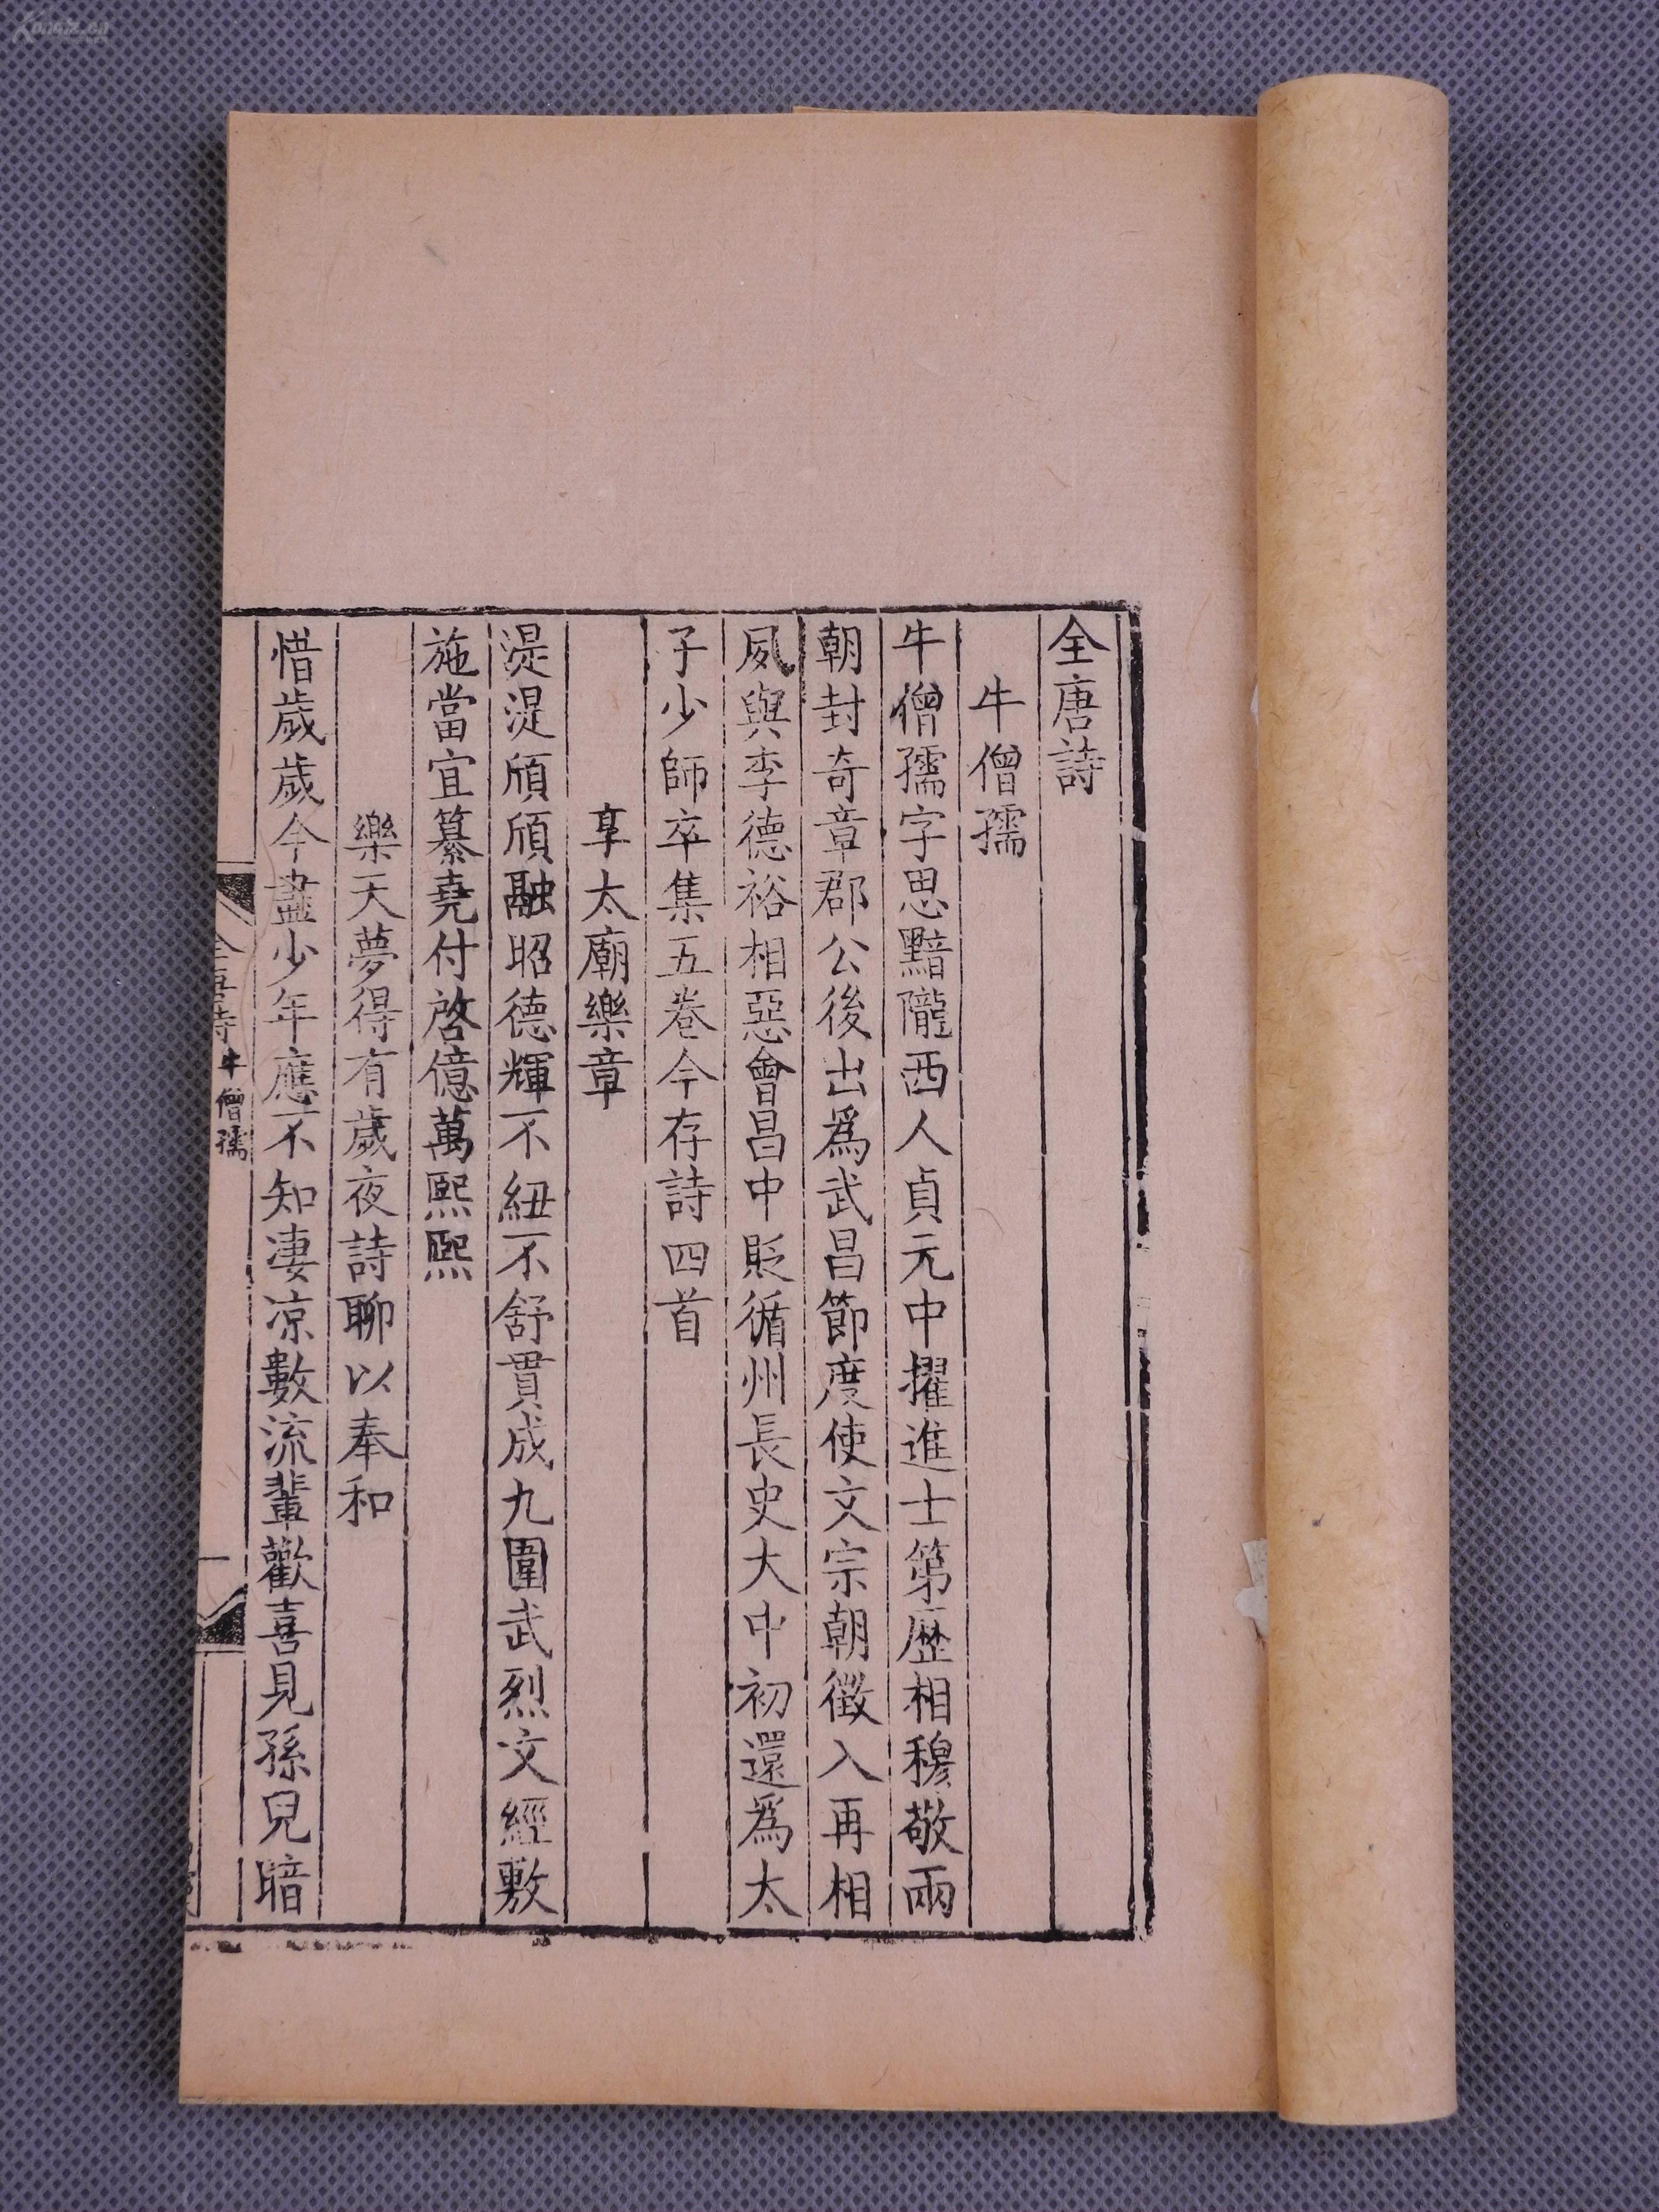 全唐詩
牛僧孺
牛僧孺字思黯隴西人貞元中擢進士第歷相穆敬兩
朝封奇章郡公後出爲武昌節度使文宗朝徵入再相
夙與李德裕相惡會昌中貶循州長史大中初還爲太
子少師卒集五卷今存詩四首
享太廟樂章
湜湜頎頎融昭德輝不紐不舒貫成九圍武烈文經敷
施當宜纂堯付啓億萬熙熙
樂天夢得有歲夜詩聊以奉和
惜歲歲今盡少年應不知淒凉數流輩歡喜見孫兒暗
全唐詩 牛僧孺
一